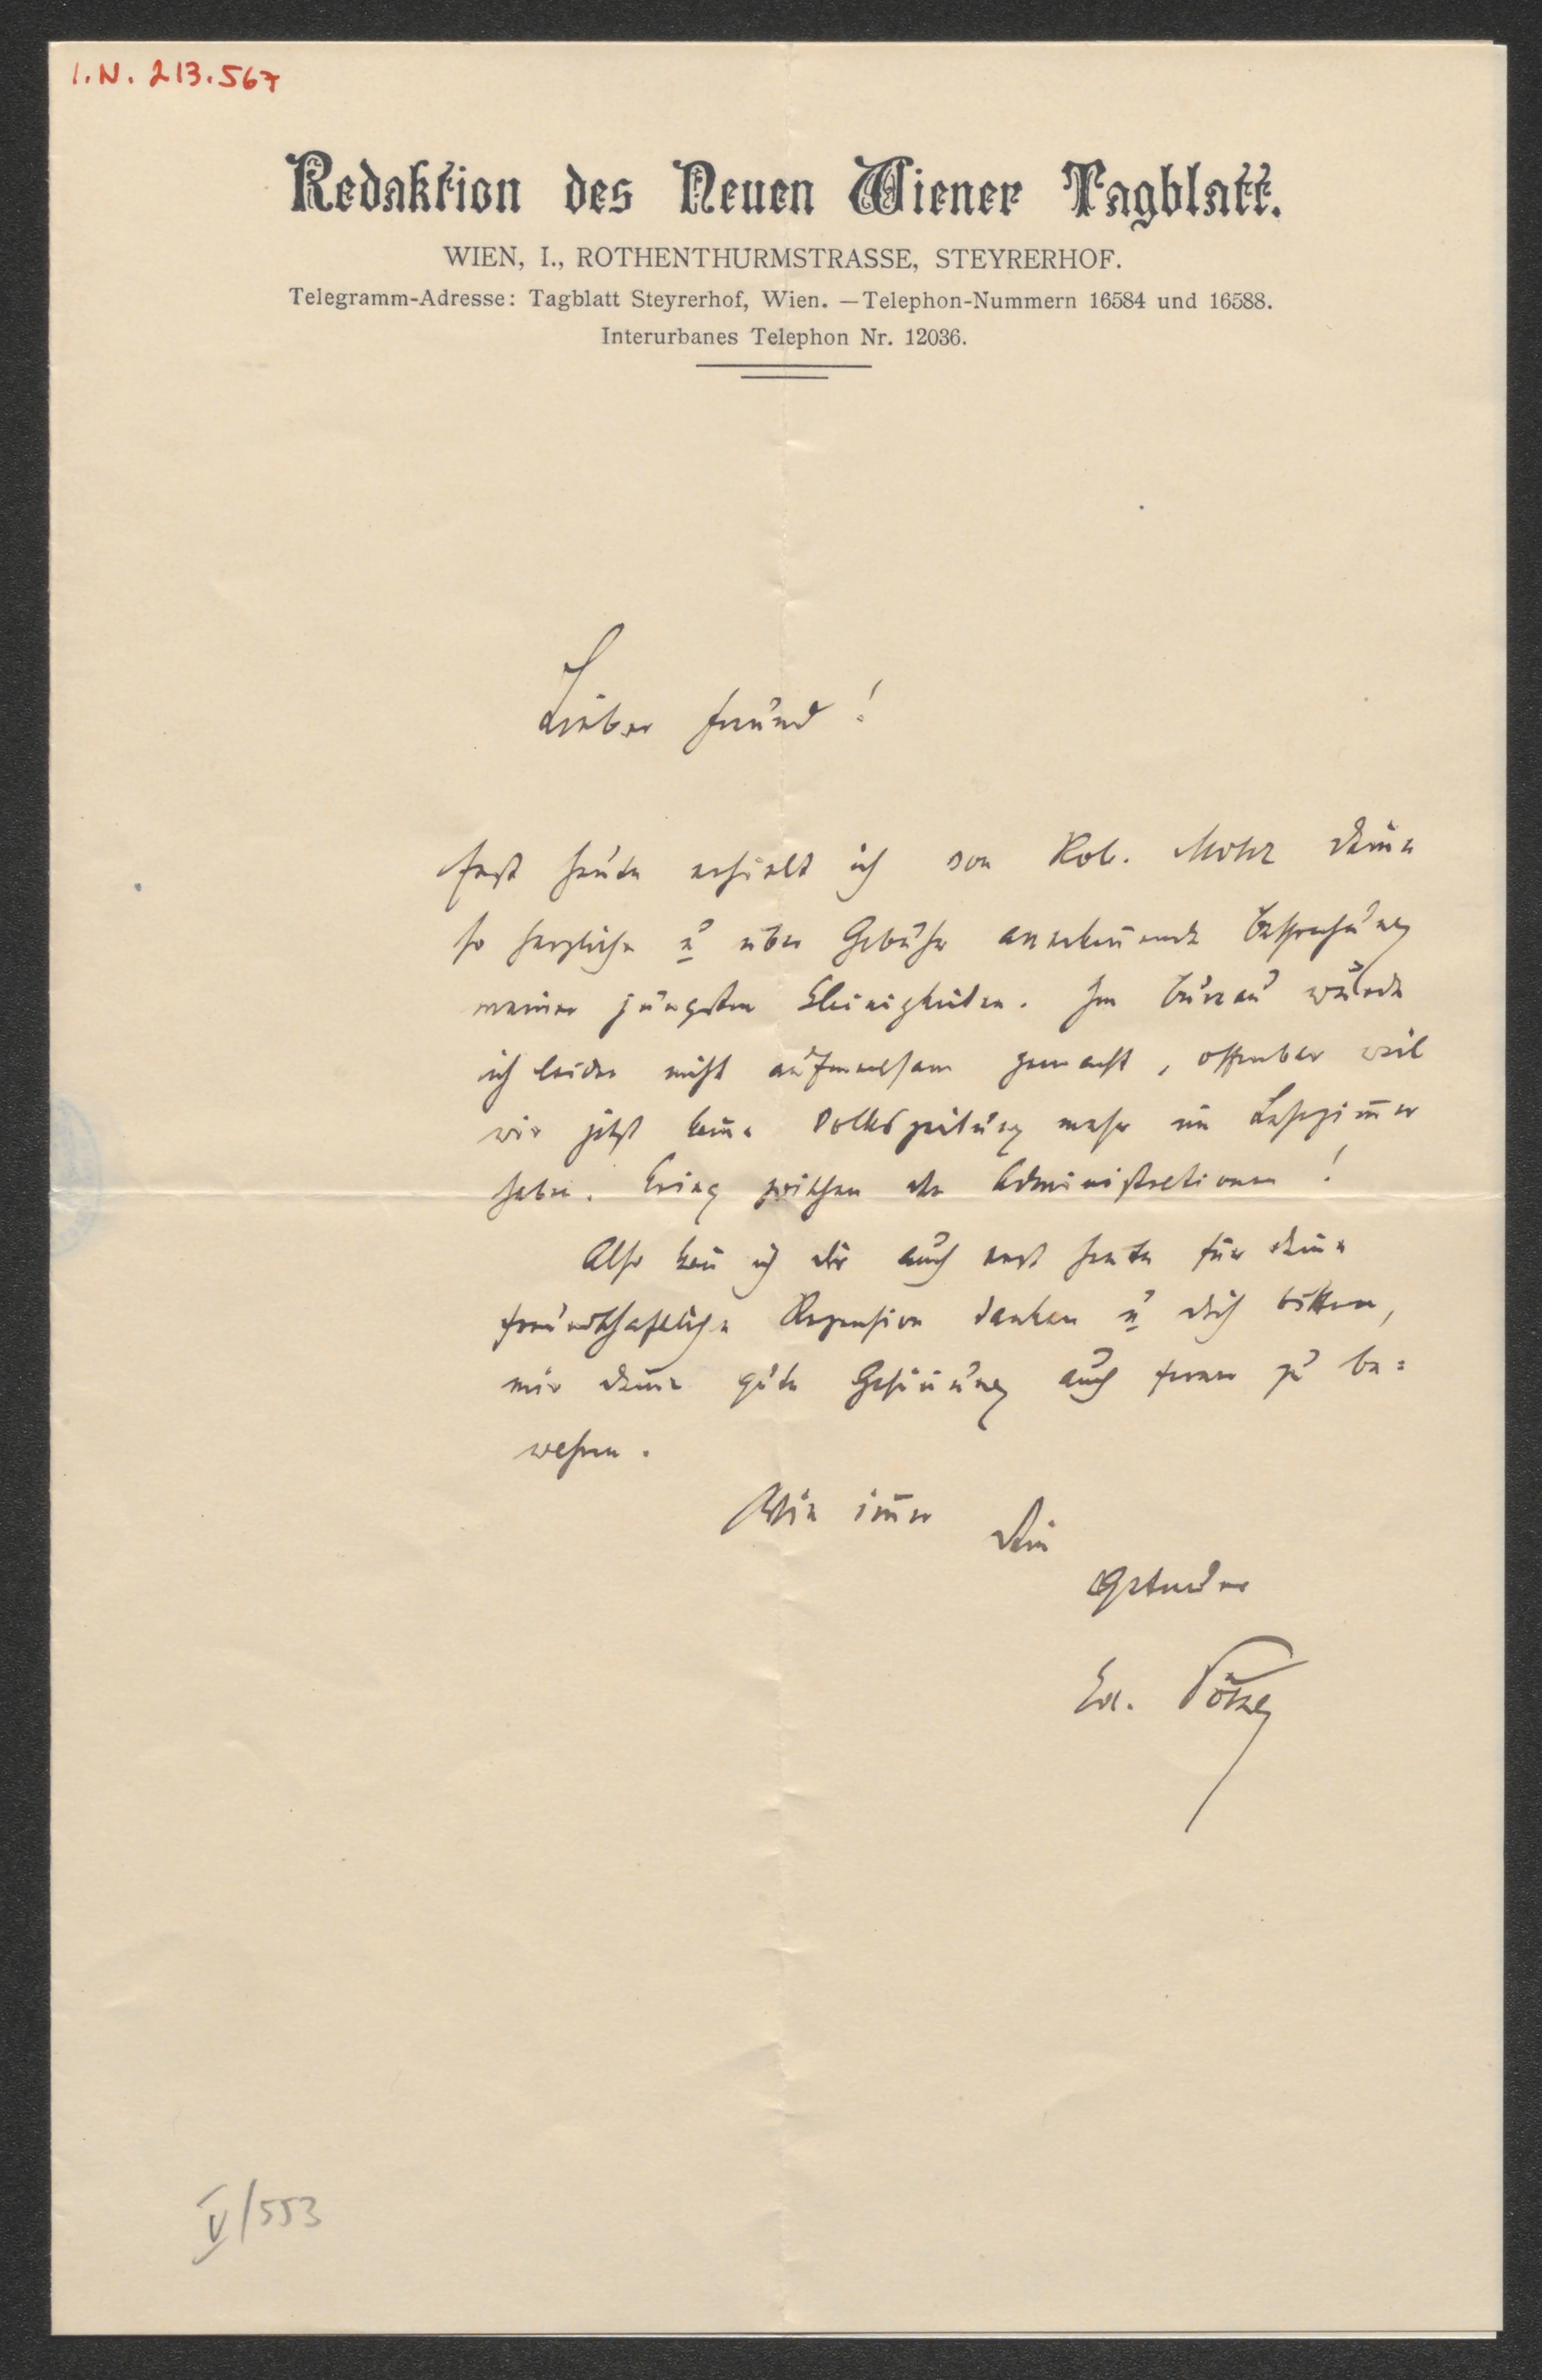 I.N. 213.567
Redaktion des Neuen Wiener Tagblatt.
WIEN, I., ROTHENTHURMSTRASSE, STEYRERHOF.
Telegramm-Adresse: Tagblatt Steyrerhof, Wien. — Telephon-Nummern 16584 und 16588.
Interurbanes Telephon Nr. 12036.
Lieber Freund!
Erst heute erhielt ich von Rob. Mohr Deine
so herzliche u über Gebühr anerkennende Besprechung
meiner jüngsten Kleinigkeiten. Im Bureau wurde
ich leider nicht aufmerksam gemacht, offenbar weil
wir jetzt keine Volkszeitung mehr im Lesezimmer
haben. Krieg zwischen den Administrationen!
Also kann ich Dir auch erst heute für Deine
freundschaftliche Rezension danken u Dich bitten,
mir Deine gute Gesinnung auch ferner zu be=
wahren.
Wie immer Dein
Ed. Pötzl
V/553